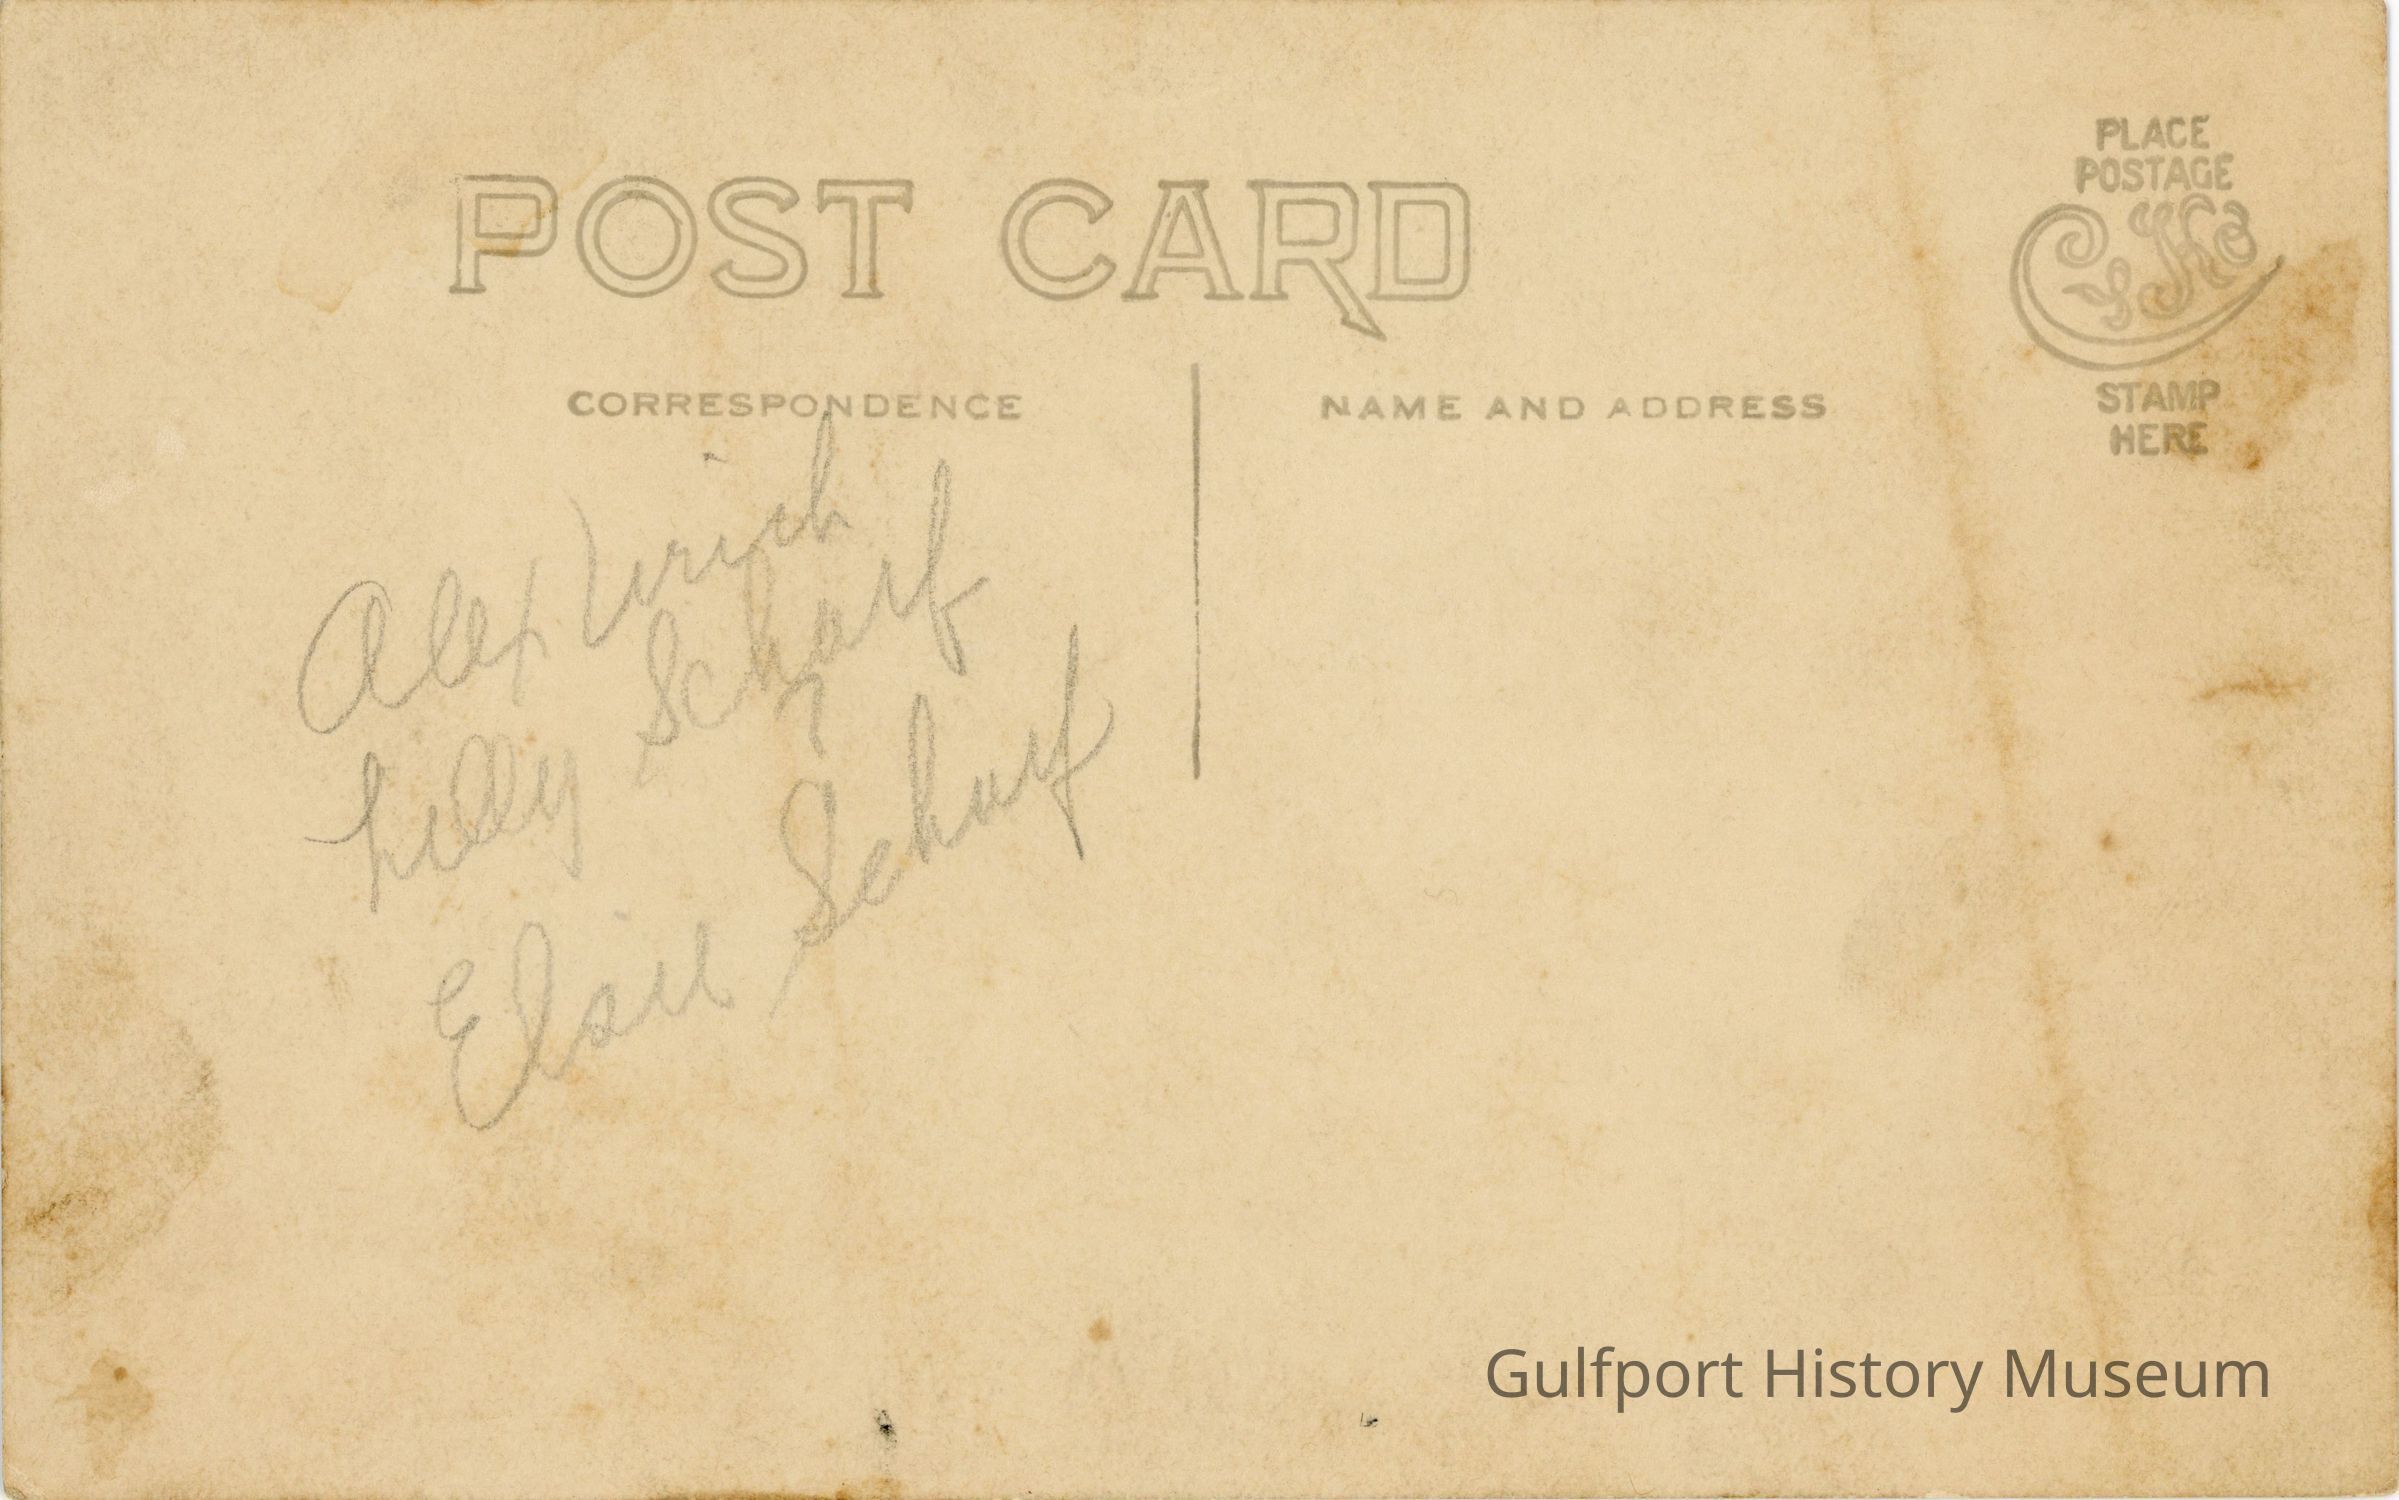 POST CARD
PLACE
POSTAGE
STAMP
HERE
CORRESPONDENCE
NAME AND ADDRESS
Alex Urich
Lilly Scharf
?
Elsie Scharf
Gulfport History Museum